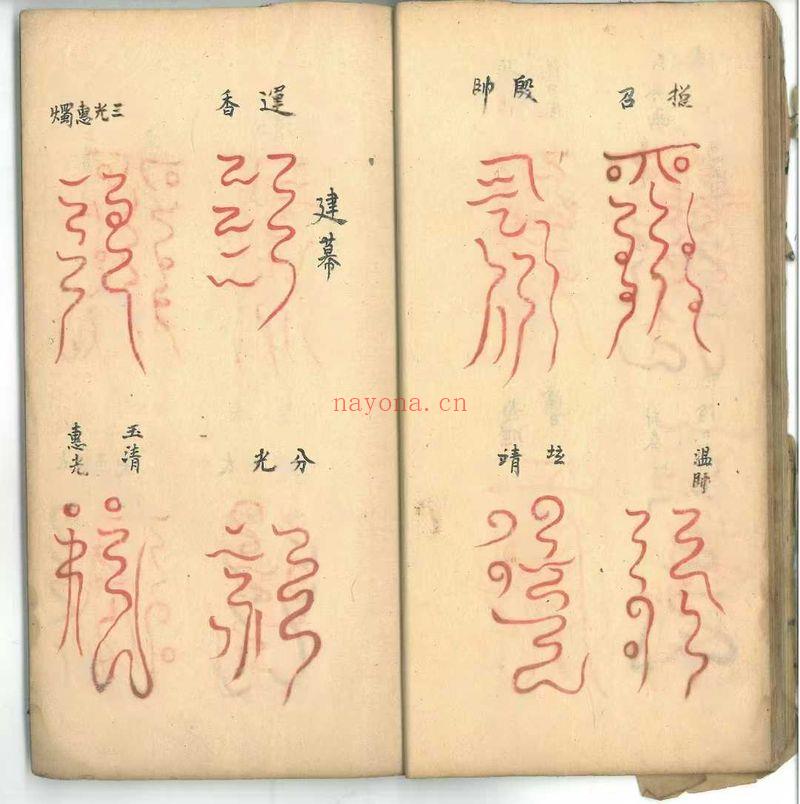 召
殷帥
温帥
坛靖
建幕
運香
三光惠燭
分光
玉清
惠光
nayona.cn